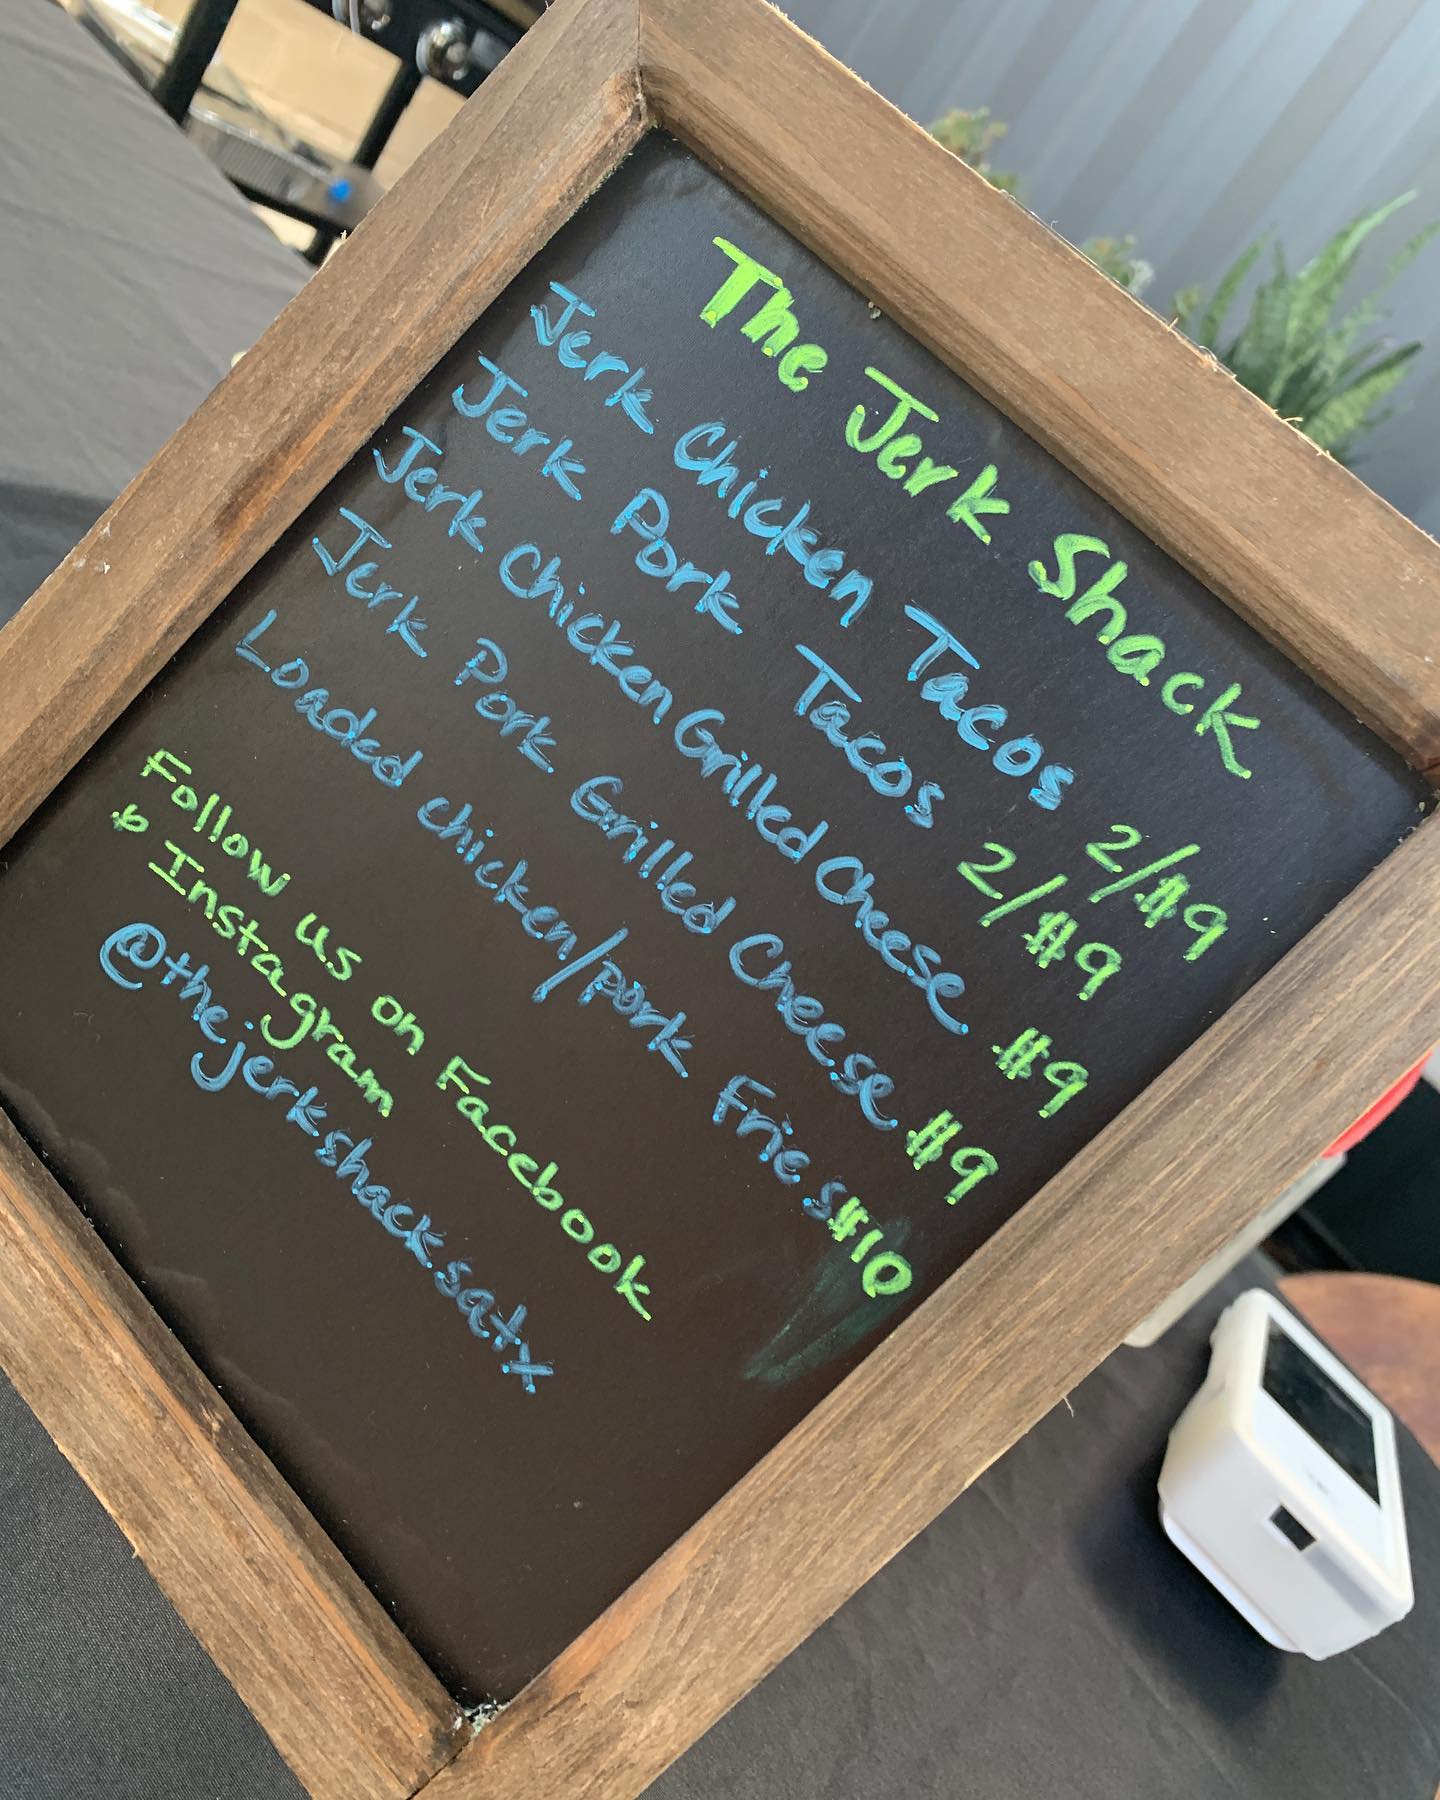 The Jerk Shack
Jerk Chicken Tacos 2/$9
Jerk Pork Tacos 2/$9
Jerk Chicken Grilled Cheese $9
Jerk Pork Grilled Cheese $9
Loaded chicken/pork Fries $10
Follow us on Facebook
& Instagram
@thejerkshacksatx